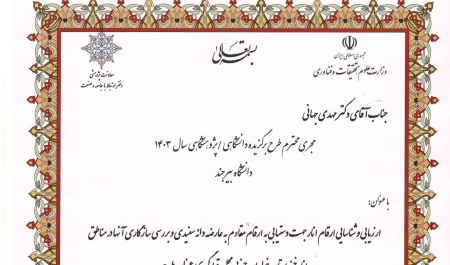 بسمه تعالی
جمهوری اسلامی ایران
وزارت علوم، تحقیقات و فناوری
معاونت پژوهشی
دفتر ارتباط با جامعه و صنعت
جناب آقای دکتر مهدی جهانی
مجری محترم طرح برگزیده دانشگاهی / پژوهشگاهی سال ۱۴۰۳
دانشگاه بیرجند
با عنوان:
ارزیابی و شناسایی ارقام انار جهت دستیابی به ارقام مقاوم به عارضه دانه سفیدی و بررسی سازگاری آنها در مناطق